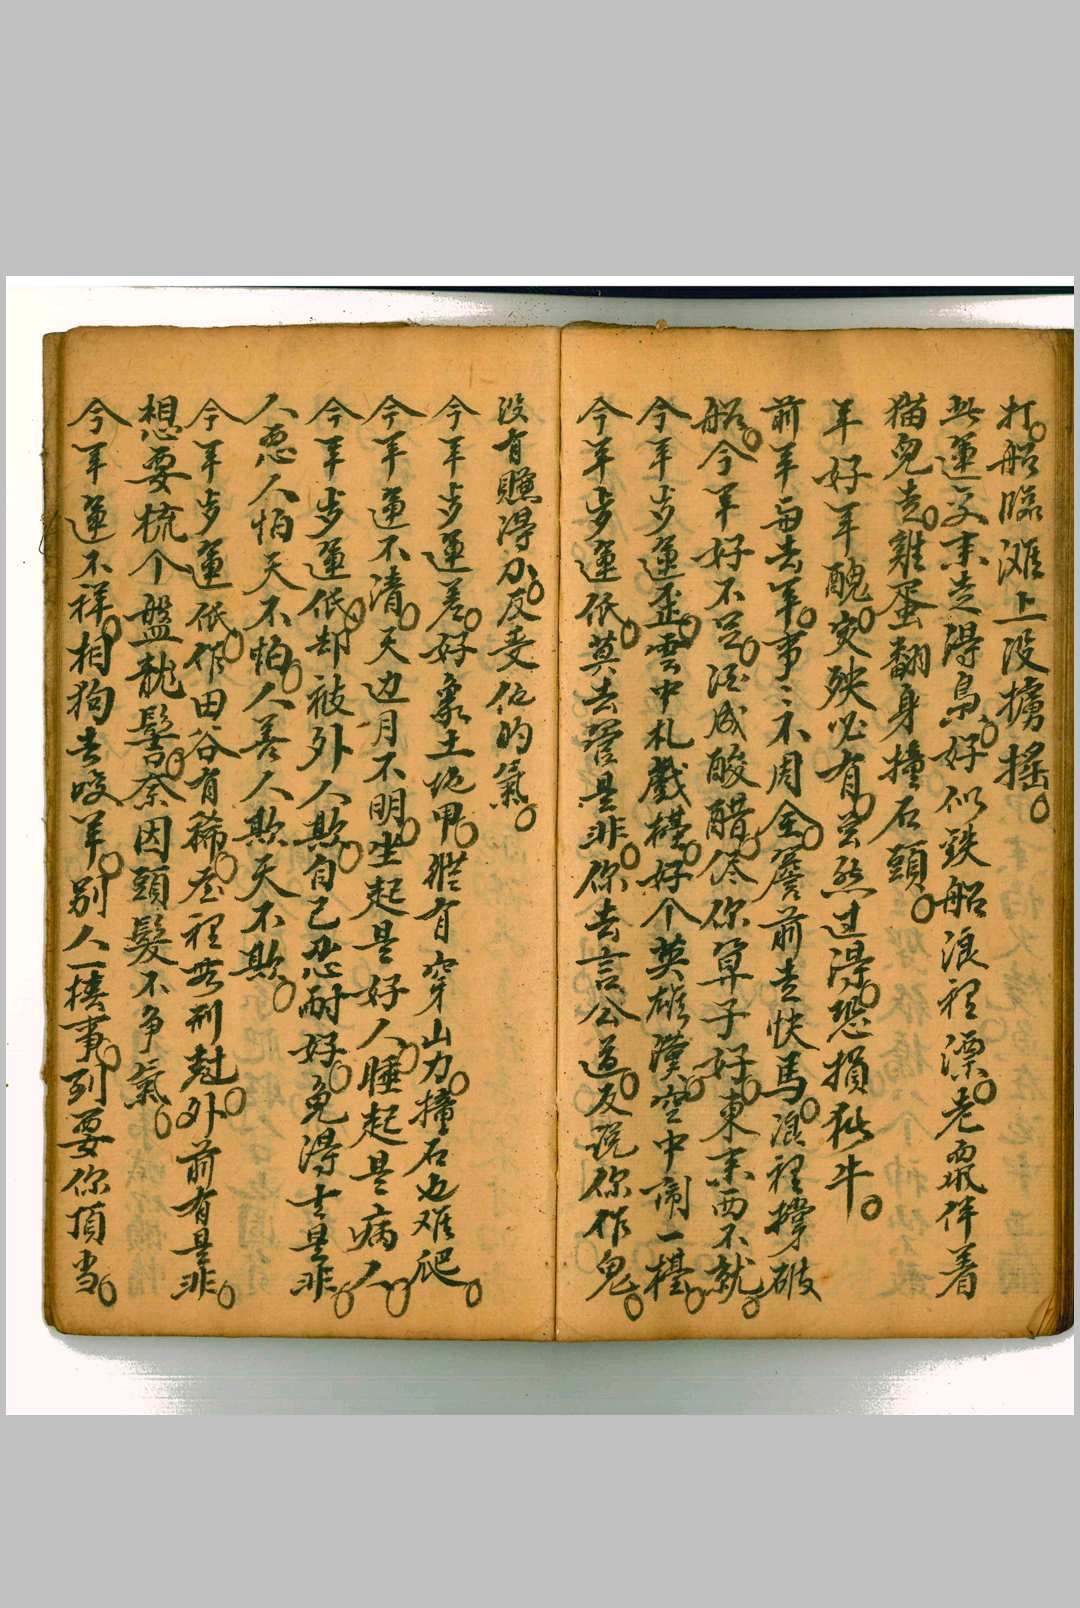 打。船臨滩上没擄摇。
此運交来走得鳥。好似鉄船浪裡漂。老鼠伴着
猫兒走。雞蛋翻身撞石頭。
年好年醜。灾殃必有。当然过得。恐損猪牛。
前年每去年。事〻不周全。簷前走快馬。浪裡撑破
船。今年好不足。酒成酸醋。伱你算子好。東来西不就。
今年步運歪。雲中札戲檯。好个英雄漢。空中闹一檯。
今年步運低。莫去管是非。你去言公道。反说你作鬼。
没有賺得力。反受他的氣。
今年步運差。好象土地甲。雖有穿山力。撞石也难爬。
今年運不清。天边月不明。坐起是好人。睡起是病人。
今年步運低。却被外人欺。自己忍耐好。免得士是非。
人惡人怕天不怕。人善人欺天不欺。
今年步運低。作田谷有稀。屋裡無刑尅。外前有是非。
想要梳个盤龍髻。奈因頭髮不争氣。
今年運不祥。相狗去咬羊。别人一樁事。列要你頂当。